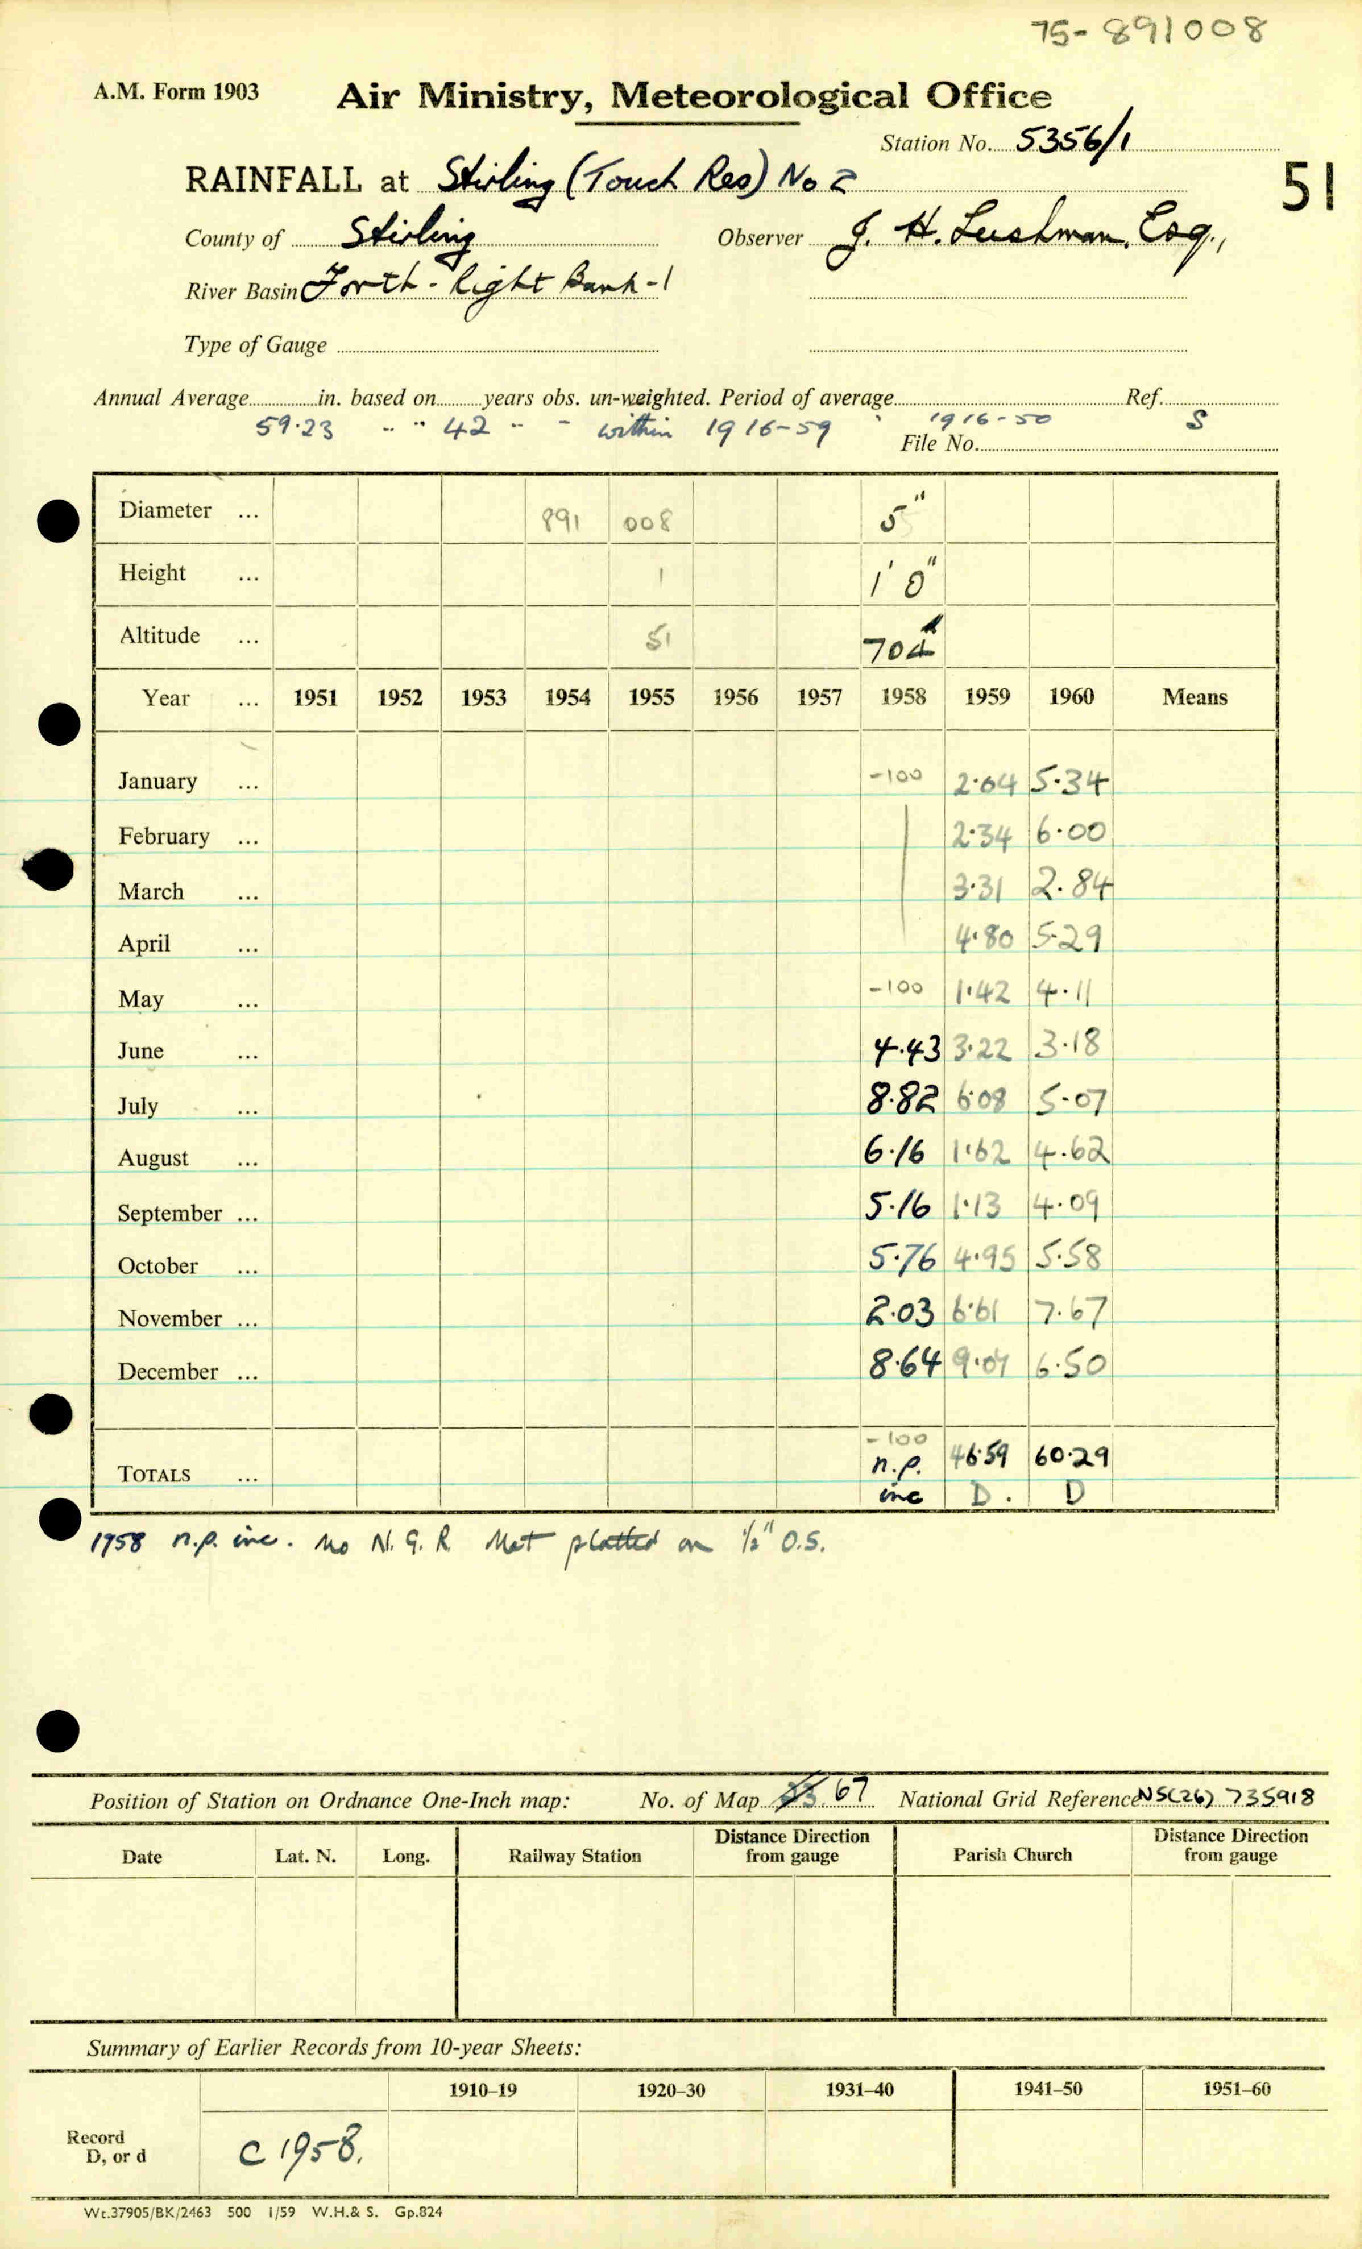 75-891008
A.M. Form 1903 Air Ministry, Meteorological Office
Station No. 5356/1
RAINFALL at Stirling (Touch Res) No 2 51
County of Stirling Observer J. H. Lushman, Esq.,
River Basin Forth - Right Bank - 1
Type of Gauge
Annual Average in. based on years obs. un-weighted. Period of average Ref.
59.23 " " 42 " - within 1916-59 " 1916-50 S
File No.
Diameter ... 891 008 5"
Height ... 1 1' 0"
Altitude ... 51 704
Year ... 1951 1952 1953 1954 1955 1956 1957 1958 1959 1960 Means
January ... -100 2.04 5.34
February ... 2.34 6.00
March ... 3.31 2.84
April ... 4.80 5.29
May ... -100 1.42 4.11
June ... 4.43 3.22 3.18
July ... 8.82 6.08 5.07
August ... 6.16 1.62 4.62
September ... 5.16 1.13 4.09
October ... 5.76 4.95 5.58
November ... 2.03 6.61 7.67
December ... 8.64 9.07 6.50
-100
TOTALS ... n.p. 46.59 60.29
inc D. D
1958 n.p. inc. No N.G.R. Not plotted on ½" O.S.
Position of Station on Ordnance One-Inch map: No. of Map 67 National Grid Reference NS(26) 735918
Date Lat. N. Long. Railway Station Distance Direction from gauge Parish Church Distance Direction from gauge
Summary of Earlier Records from 10-year Sheets:
1910–19 1920–30 1931–40 1941–50 1951–60
Record
D, or d C 1958.
Wt.37905/BK/2463 500 1/59 W.H.& S. Gp.824